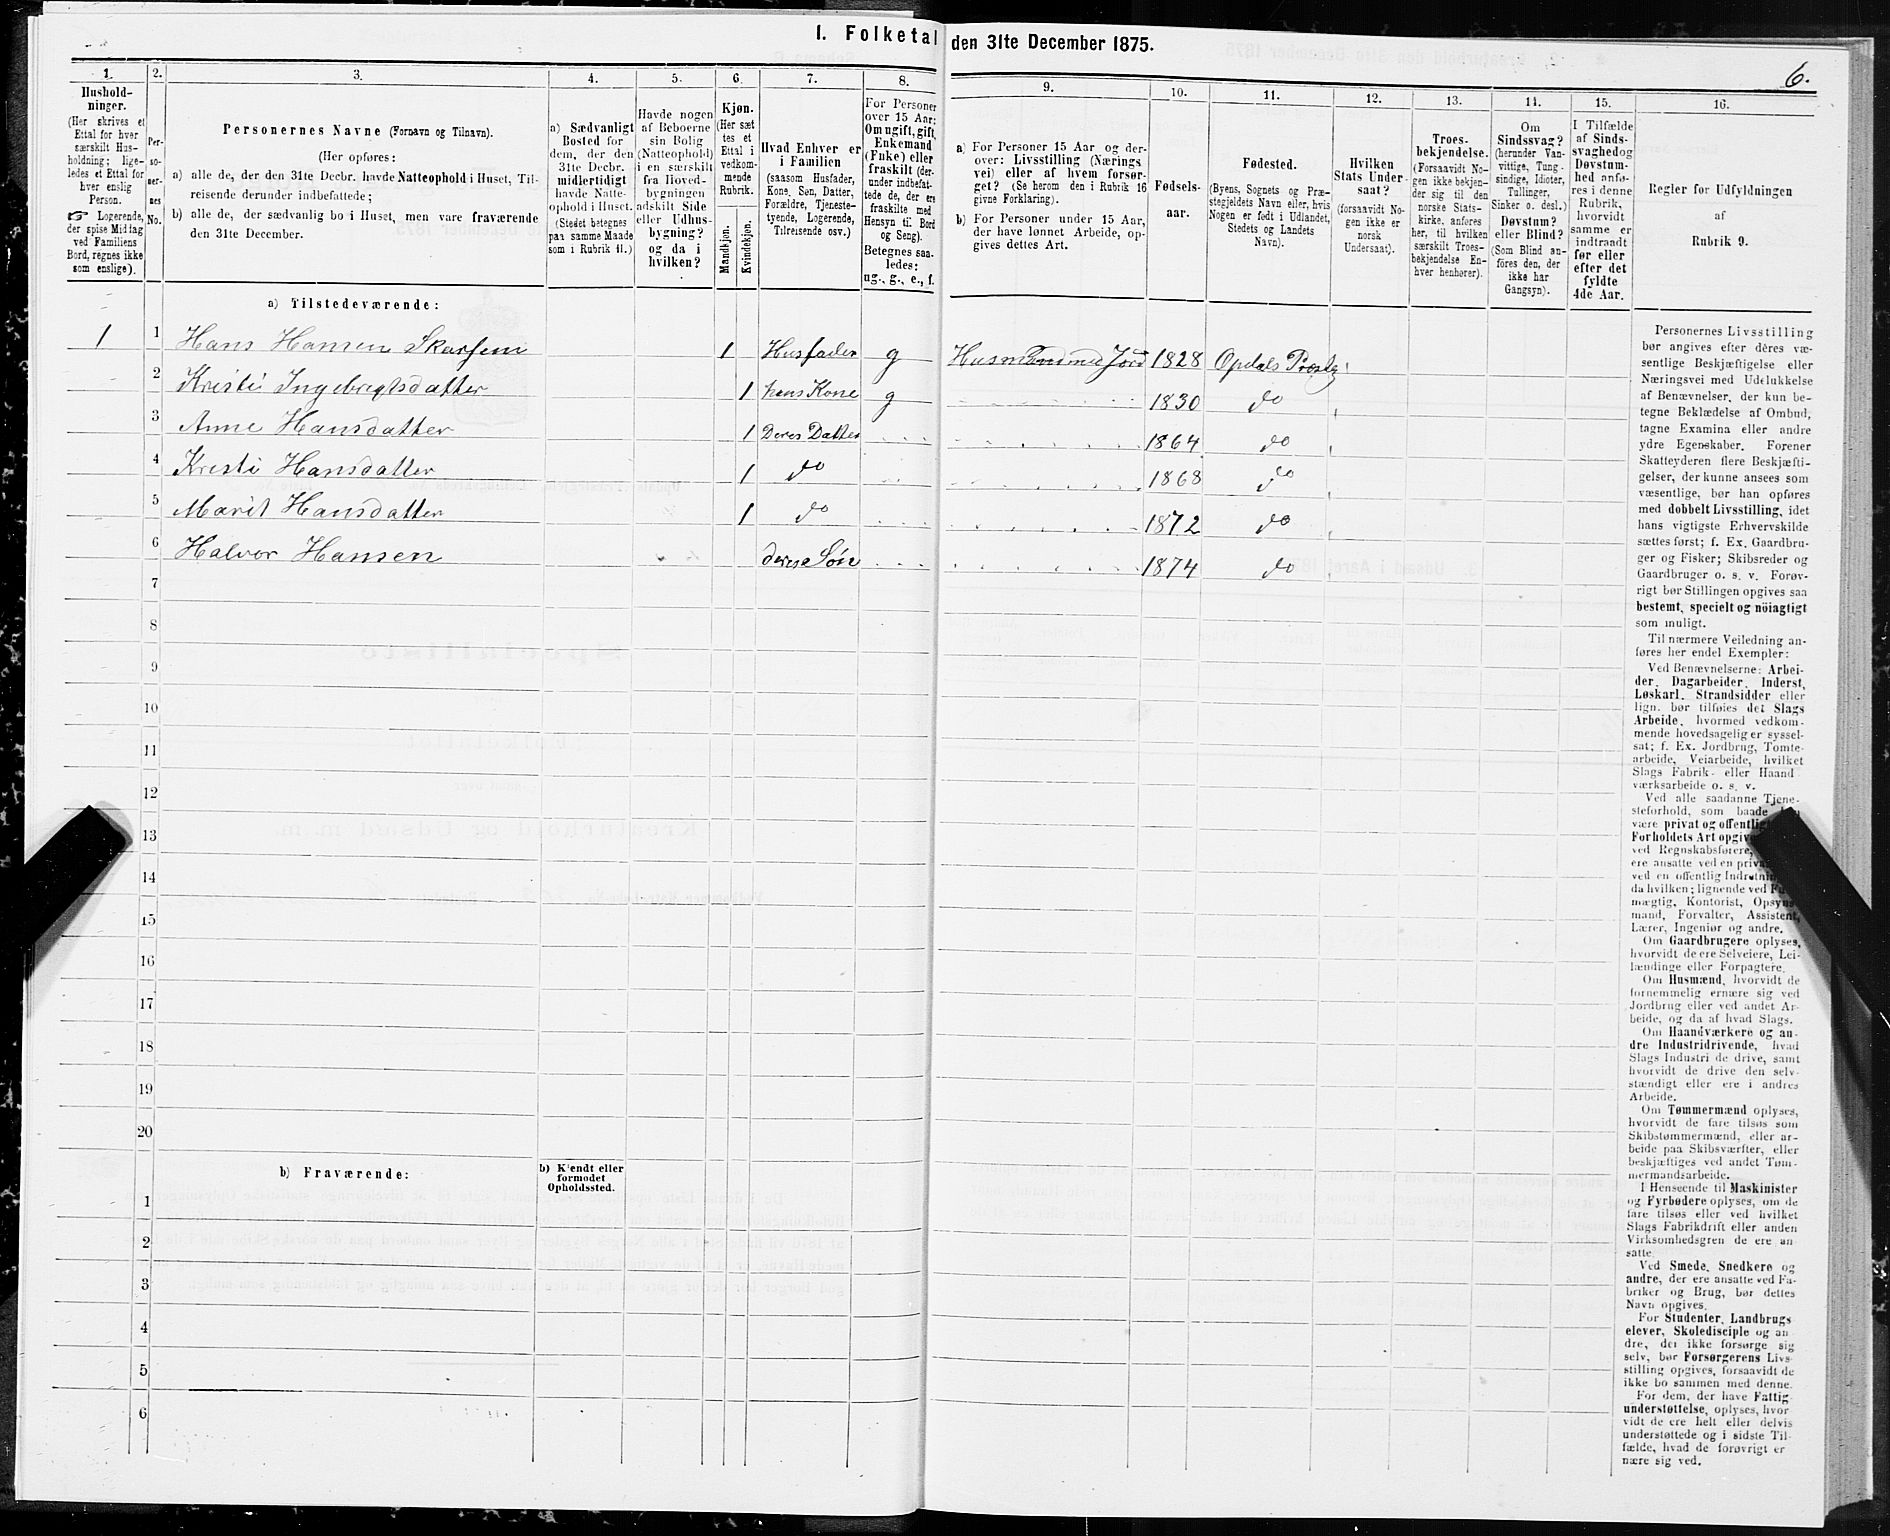 I. Folketal den 31te December 1875.
6.
1.
Husholdninger.
(Her skrives et
Ettal for hver
særskilt Husholdning;
ligeledes et Ettal for
hver enslig
Person.
☞ Logerende,
der spise Middag
ved Familiens
Bord, regnes ikke
som enslige).
2.
Personernes
No.
3.
Personernes Navne (Fornavn og Tilnavn).
(Her opføres:
a) alle de, der den 31te Decbr. havde Natteophold i Huset, Tilreisende derunder indbefattede;
b) alle de, der sædvanlig bo i Huset, men vare fraværende
den 31te December.
4.
a) Sædvanligt
Bosted for
dem, der den
31te Decbr.
midlertidigt
havde Natteophold
i Huset.
(Stedet betegnes
paa samme Maade
som i Rubrik 11.)
5.
Havde nogen
af Beboerne
sin Bolig
(Natteophold)
i en særskilt
fra Hovedbygningen
adskilt Side
eller Udhusbygning?
og da i
hvilken?
6.
Kjøn.
(Her sættes
et
Ettal i
vedkommende
Rubrik.
Mandkjøn.
Kvindekjøn.
7.
Hvad Enhver er
i Familien
(saasom Husfader,
Kone, Søn, Datter,
Forældre, Tjenestetyende,
Logerende,
Tilreisende osv.)
8.
For Personer
over 15 Aar:
Om ugift, gift,
Enkemand
(Enke) eller
fraskilt (derunder
indbefattede
de, der ere
fraskilte med
Hensyn til Bord
og Seng).
Betegnes saaledes:
ug., g., e., f.
9.
a) For Personer 15 Aar og derover:
Livsstilling (Nærings
vei) eller af hvem forsørget?
(Se herom den i Rubrik 16
givne Forklaring).
b) For Personer under 15 Aar,
der have lønnet Arbeide, opgives
dettes Art.
10.
Fødselsaar.
11.
Fødested.
(Byens, Sognets og Præstegjeldets
Navn eller, hvis
Nogen er født i Udlandet,
Stedets og Landets
Navn).
12.
Hvilken
Stats Undersaat?
(forsaavidt Nogen
ikke er
norsk
Undersaat).
13.
Troesbekjendelse.
(Forsaavidt Nogen
ikke bekjender
sig til den
norske Statskirke,
anføres
her, til hvilken
særskilt Troesbekjendelse
Enhver
henhører).
14.
Om
Sindssvag?
(herunder Vanvittige,
Tungsindige,
Idioter,
Tullinger,
Sinker o. desl.)
Døvstum?
eller Blind?
(Som Blind anføres
den, der
ikke har
Gangsyn).
15.
I Tilfælde
af Sindssvaghed
og
Døvstumhed
anføres
i denne
Rubrik,
hvorvidt
samme er
indtraadt
før eller
efter det
fyldte
4de Aar.
16.
Regler for Udfyldningen
af
Rubrik 9.
a) Tilstedeværende:
1 1 Hans Hansen Skarsem 1 Husfader g Husmand med Jord 1828 Opdals Præstg.
2 Kristi Ingebrigtsdatter 1 hans Kone g 1830 do
3 Anne Hansdatter 1 Deres Datter 1864 do
4 Kristi Hansdatter 1 do 1868 do
5 Marit Hansdatter 1 do 1872 do
6 Halvor Hansen deres Søn 1874 do
7
8
9
10
11
12
13
14
15
16
17
18
19
20
b) Fraværende:
b) Kjendt eller
formodet
Opholdssted.
1
2
3
4
5
6
Personernes Livsstilling
bør angives efter deres væsentlige
Beskjæftigelse eller
Næringsvei med Udelukkelse
af Benævnelser, der kun betegne
Beklædelse af Ombud,
tagne Examina eller andre
ydre Egenskaber. Forener
Skatteyderen flere Beskjæftigelser,
der kunne ansees som
væsentlige, bør han opføres
med dobbelt Livsstilling, idet
hans vigtigste Erhvervskilde
sættes først; f. Ex. Gaardbruger
og Fisker; Skibsreder og
Gaardbruger o. s. v. Forøvrigt
bør Stillingen opgives saa
bestemt, specielt og nöiagtigt
som muligt.
Til nærmere Veiledning anføres
her endel Exempler:
Ved Benævnelserne: Arbeider,
Dagarbeider, Inderst,
Løskarl, Strandsidder eller
lign. bør tilføies det Slags
Arbeide, hvormed vedkommende
hovedsagelig er sysselsat;
f. Ex. Jordbrug, Tomtearbeide,
Veiarbeide, hvilket
Slags Fabrik- eller Haandværksarbeide
o. s. v.
Ved alle saadanne Tjenesteforhold,
som baade
være privat og offentlig
Forholdets Art opgives
ved Regnskabsførere,
ere ansatte ved en privat
ved en offentlig Indretning
da hvilken; lignende ved Fuldmægtig,
Kontorist, Opsynsmand,
Forvalter, Assistent,
Lærer, Ingeniør og andre.
Om Gaardbrugere oplyses,
hvorvidt de ere Selveiere, Leilændinge
eller Forpagtere.
Om Husmænd, hvorvidt de
fornemmelig ernære sig ved
Jordbrug eller ved andet Arbeide,
og da af hvad Slags.
Om Haandværkere og andre
Industridrivende, hvad
Slags Industri de drive, samt
hvorvidt de drive den selvstændigt
eller ere i andres
Arbeide.
Om Tømmermænd oplyses,
hvorvidt de fare tilsøs som
Skibstømmermænd, eller arbeide
paa Skibsværfter, eller
beskjæftiges ved andet Tømmermandsarbeide.
I Henseende til Maskinister
og Fyrbødere oplyses, om de
fare tilsøs eller ved hvilket
Slags Fabrikdrift eller anden
Virksomhedsgren de ere ansatte.
Ved Smede, Snedkere og
andre, der ere ansatte ved Fabriker
og Brug, bør dettes
Navn opgives.
For Studenter, Landbrugselever,
Skoledisciple og andre,
der ikke forsørge sig
selv, bør Forsørgerens Livsstilling
opgives, forsaavidt de
ikke bo sammen med denne.
For dem, der have Fattigunderstøttelse,
oplyses, hvorvidt
de ere helt eller delvis
understøttede og i sidste Tilfælde,
hvad de forøvrigt ernære
sig ved.